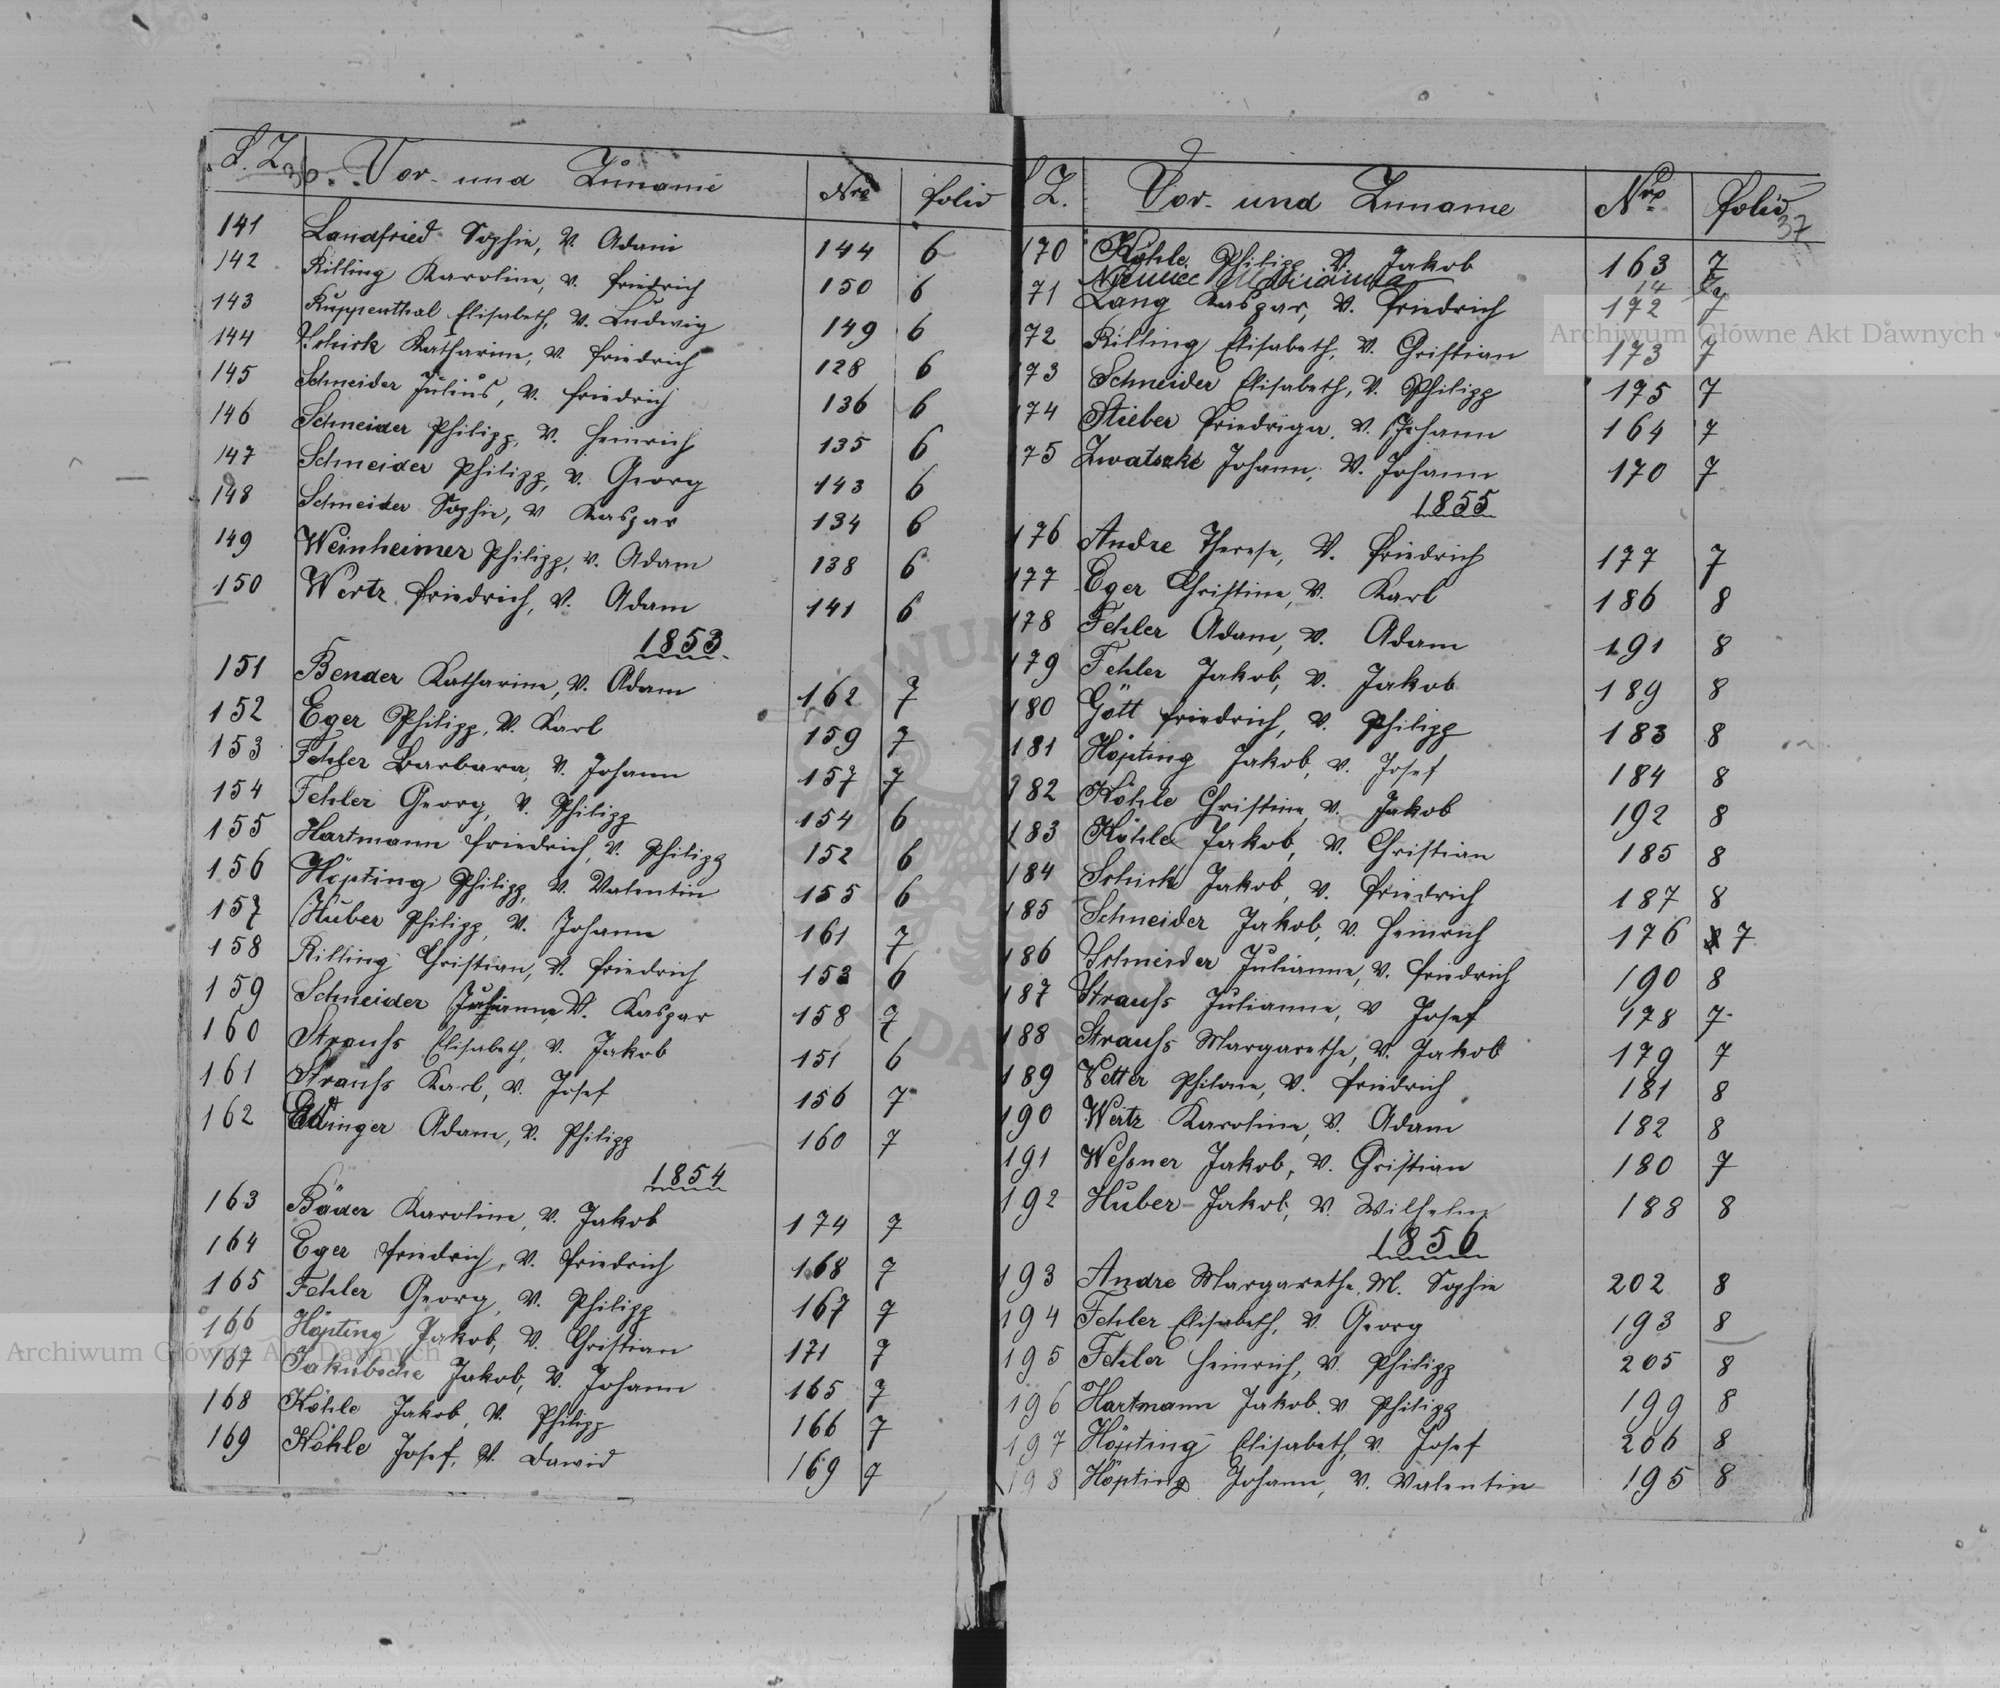 L. Z. 36. Vor- und Zuname Nro folio
141 Landfried Sophie, V. Adam 144 6
142 Killing Karoline, V. Friedrich 150 6
143 Kuppenthal Elisabeth, V. Ludwig 149 6
144 Schick Katharine, V. Friedrich 128 6
145 Schneider Julius, V. Friedrich 136 6
146 Schneider Philipp, V. Heinrich 135 6
147 Schneider Philipp, V. Georg 143 6
148 Schneider Sophie, V Kaspar 134 6
149 Weinheimer Philipp, V. Adam 138 6
150 Wertz Friedrich, V. Adam 141 6
1853.
151 Bender Katharine, V. Adam 162 7
152 Eger Philipp, V. Karl 159 7
153 Fehler Barbara, V. Johann 157 7
154 Fehler Georg, V. Philipp 154 6
155 Hartmann Friedrich, V. Philipp 152 6
156 Höpting Philipp, V. Valentin 155 6
157 Huber Philipp, V. Johann 161 7
158 Killing Christian, V. Friedrich 153 6
159 Schneider Julianne, V. Kaspar 158 7
160 Strauhs Elisabeth, V. Jakob 151 6
161 Strauhs Karl, V. Josef 156 7
162 Edinger Adam, V. Philipp 160 7
1854
163 Bäder Karoline, V. Jakob 174 7
164 Eger Friedrich, V. Friedrich 168 7
165 Fehler Georg, V. Philipp 167 7
166 Höpting Jakob, V. Christian 171 7
167 Jakubsche Jakob, V. Johann 165 7
168 Köhle Jakob, V. Philipp 166 7
169 Köhle Josef, V. Dawid 169 7
L. Z. Vor- und Zuname Nro folio 37
170 Köhle Philipp V. Jakob 163 7
Niemiec Marianna 14
171 Lang Kaspar, V. Friedrich 172 7
172 Killing Elisabeth, V. Christian 173 7
173 Schneider Elisabeth, V. Philipp 175 7
174 Stieber Friedriga, V. Johann 164 7
175 Zwatschke Johann, V. Johann 170 7
1855
176 Andre Therese, V. Friedrich 177 7
177 Eger Christine, V. Karl 186 8
178 Fehler Adam, V. Adam 191 8
179 Fehler Jakob, V. Jakob 189 8
180 Gött Friedrich, V. Philipp 183 8
181 Höpting Jakob, V. Josef 184 8
182 Köhle Christine, V. Jakob 192 8
183 Köhle Jakob, V. Christian 185 8
184 Schick Jakob, V. Friedrich 187 8
185 Schneider Jakob, V. Heinrich 176 7
186 Schneider Julianne, V. Friedrich 190 8
187 Strauhs Julianne, V Josef 178 7
188 Strauhs Margarethe, V. Jakob 179 7
189 Vetter V. Friedrich 181 8
190 Wertz Karoline, V. Adam 182 8
191 Wehsner Jakob, V. Christian 180 7
192 Huber Jakob, V. Wilhelm 188 8
1856
193 Andre Margarethe, M. Sophie 202 8
194 Fehler Elisabeth, V. Georg 193 8
195 Fehler Heinrich, V. Philipp 205 8
196 Hartmann Jakob V Philipp 199 8
197 Höpting Elisabeth, V. Josef 206 8
198 Höpting Johann, V. Valentin 195 8
Archiwum Główne Akt Dawnych
Archiwum Główne Akt Dawnych